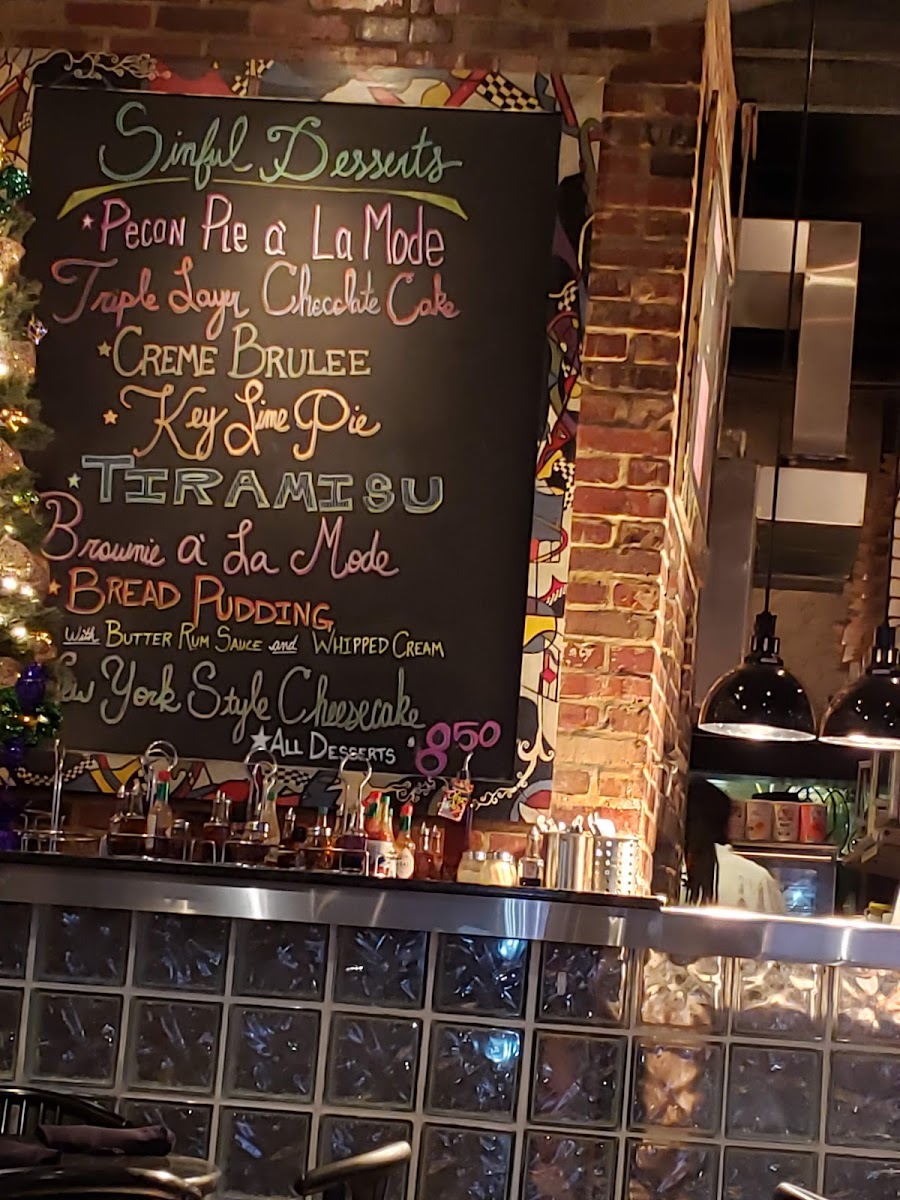 Sinful Desserts
*Pecan Pie à La Mode
Triple Layer Chocolate Cake
*Creme Brulee
*Key Lime Pie
*Tiramisu
Brownie à La Mode
*Bread Pudding
with Butter Rum Sauce and Whipped Cream
York Style Cheesecake
*All Desserts 850